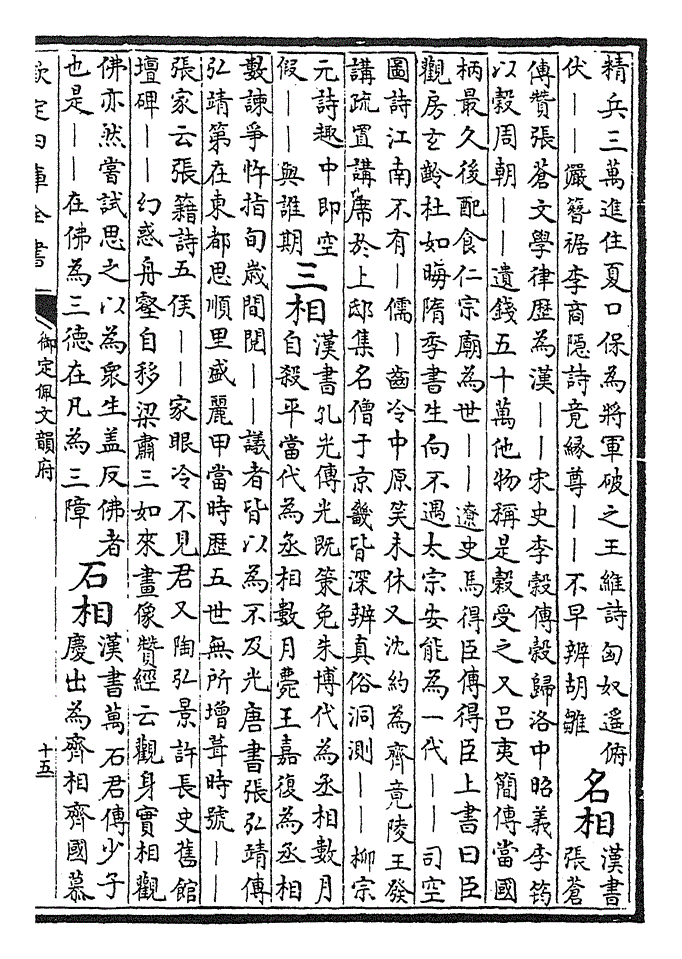 精兵三萬進住夏口保為將軍破之王維詩匈奴遥俯
伏——儼簪裾李商隐詩竟縁尊——不早辨胡雛
名相
漢書
張蒼
傳贊張蒼文學律歴為漢——宋史李榖傳榖歸洛中昭義李筠
以榖周朝——遺錢五十萬他物稱是榖受之又吕夷簡傳當國
柄最久後配食仁宗廟為世——遼史馬得臣傳得臣上書曰臣
觀房玄齡杜如晦隋季書生向不遇太宗安能為一代——司空
圖詩江南不有—儒—齒冷中原笑未休又沈約為齊竟陵王發
講疏置講席於上邸集名僧于京畿皆深辨真俗洞測——柳宗
元詩趣中即空
假——與誰期
三相
漢書孔光傳光既策免朱博代為丞相數月
自殺平當代為丞相數月薨王嘉復為丞相
數諫爭忤指旬歳間閱——議者皆以為不及光唐書張弘靖傳
弘靖第在東都思順里盛麗甲當時歴五世無所增葺時號——
張家云張籍詩五侯——家眼冷不見君又陶弘景許長史舊館
壇碑——幻惑舟壑自移梁肅三如來畫像贊經云觀身實相觀
佛亦然嘗試思之以為衆生盖反佛者
也是——在佛為三德在凡為三障
石相
漢書萬石君傳少子
慶出為齊相齊國慕
欽定四庫全書
御定佩文韻府
十五